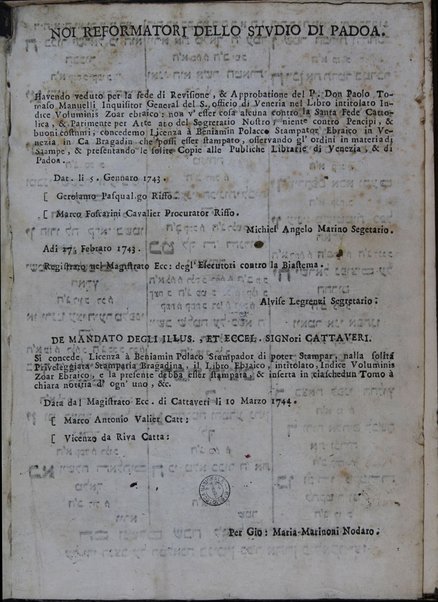 NOI REFORMATORI DELLO STVDIO DI PADOA.
Havendo veduto per la fede di Revisione, & Approbatione del P. Don Paolo To-
maso Manuelli Inquisitor General del S. officio di Veneria nel Libro intitolato In-
dice Voluminis Zoar ebraico: non v' esser cosa alcuna contro la Santa Fede Catto-
lica, & Parimente per Atte ato del Segretario Nostro, niente contro Prencipi, &
buoni costumi, concedemo Licenza à Beniamin Polacco Stampator Ebraico in Ve-
nezia in Ca Bragadin che possi esser stampato, osservando gl' ordini in materia di
Stampe, & presentando le solite Copie alle Publiche Librarie di Venezia, & di
Padoa.
Dat. li 5. Gennaro 1743.
[ Gerolamo Pasqual.go Riffo.
[ Marco Foscarini Cavalier Procurator Riffo.
Michiel Angelo Marino Segetario.
Adi 27. Febraro 1743.
Registrato nel Magistrato Ecc: degl' Essecutori contro la Biastema.
Alvise Legrenzi Segretario.
DE MANDATO DEGLI ILLUS. ET ECCEL. SIGNori CATTAVERI.
Si concede, Licenza à Beniamin Polaco Stampador di poter Stampar, nalla solita
Priveleggiata Stamparia Bragadina, il Libro Ebraico, intitolato, Indice Voluminis
Zoar Ebraico, e la presente debba esser stampata, & inserta in ciaschedun Tomo à
chiara notizia d' ogn' uno, &c.
Data dal Magistrato Ecc. di Cattaveri li 10 Marzo 1744.
[ Marco Antonio Valier Catt:
[ Vicenzo da Riva Catta:
Per Gio: Maria Marinoni Nodaro.